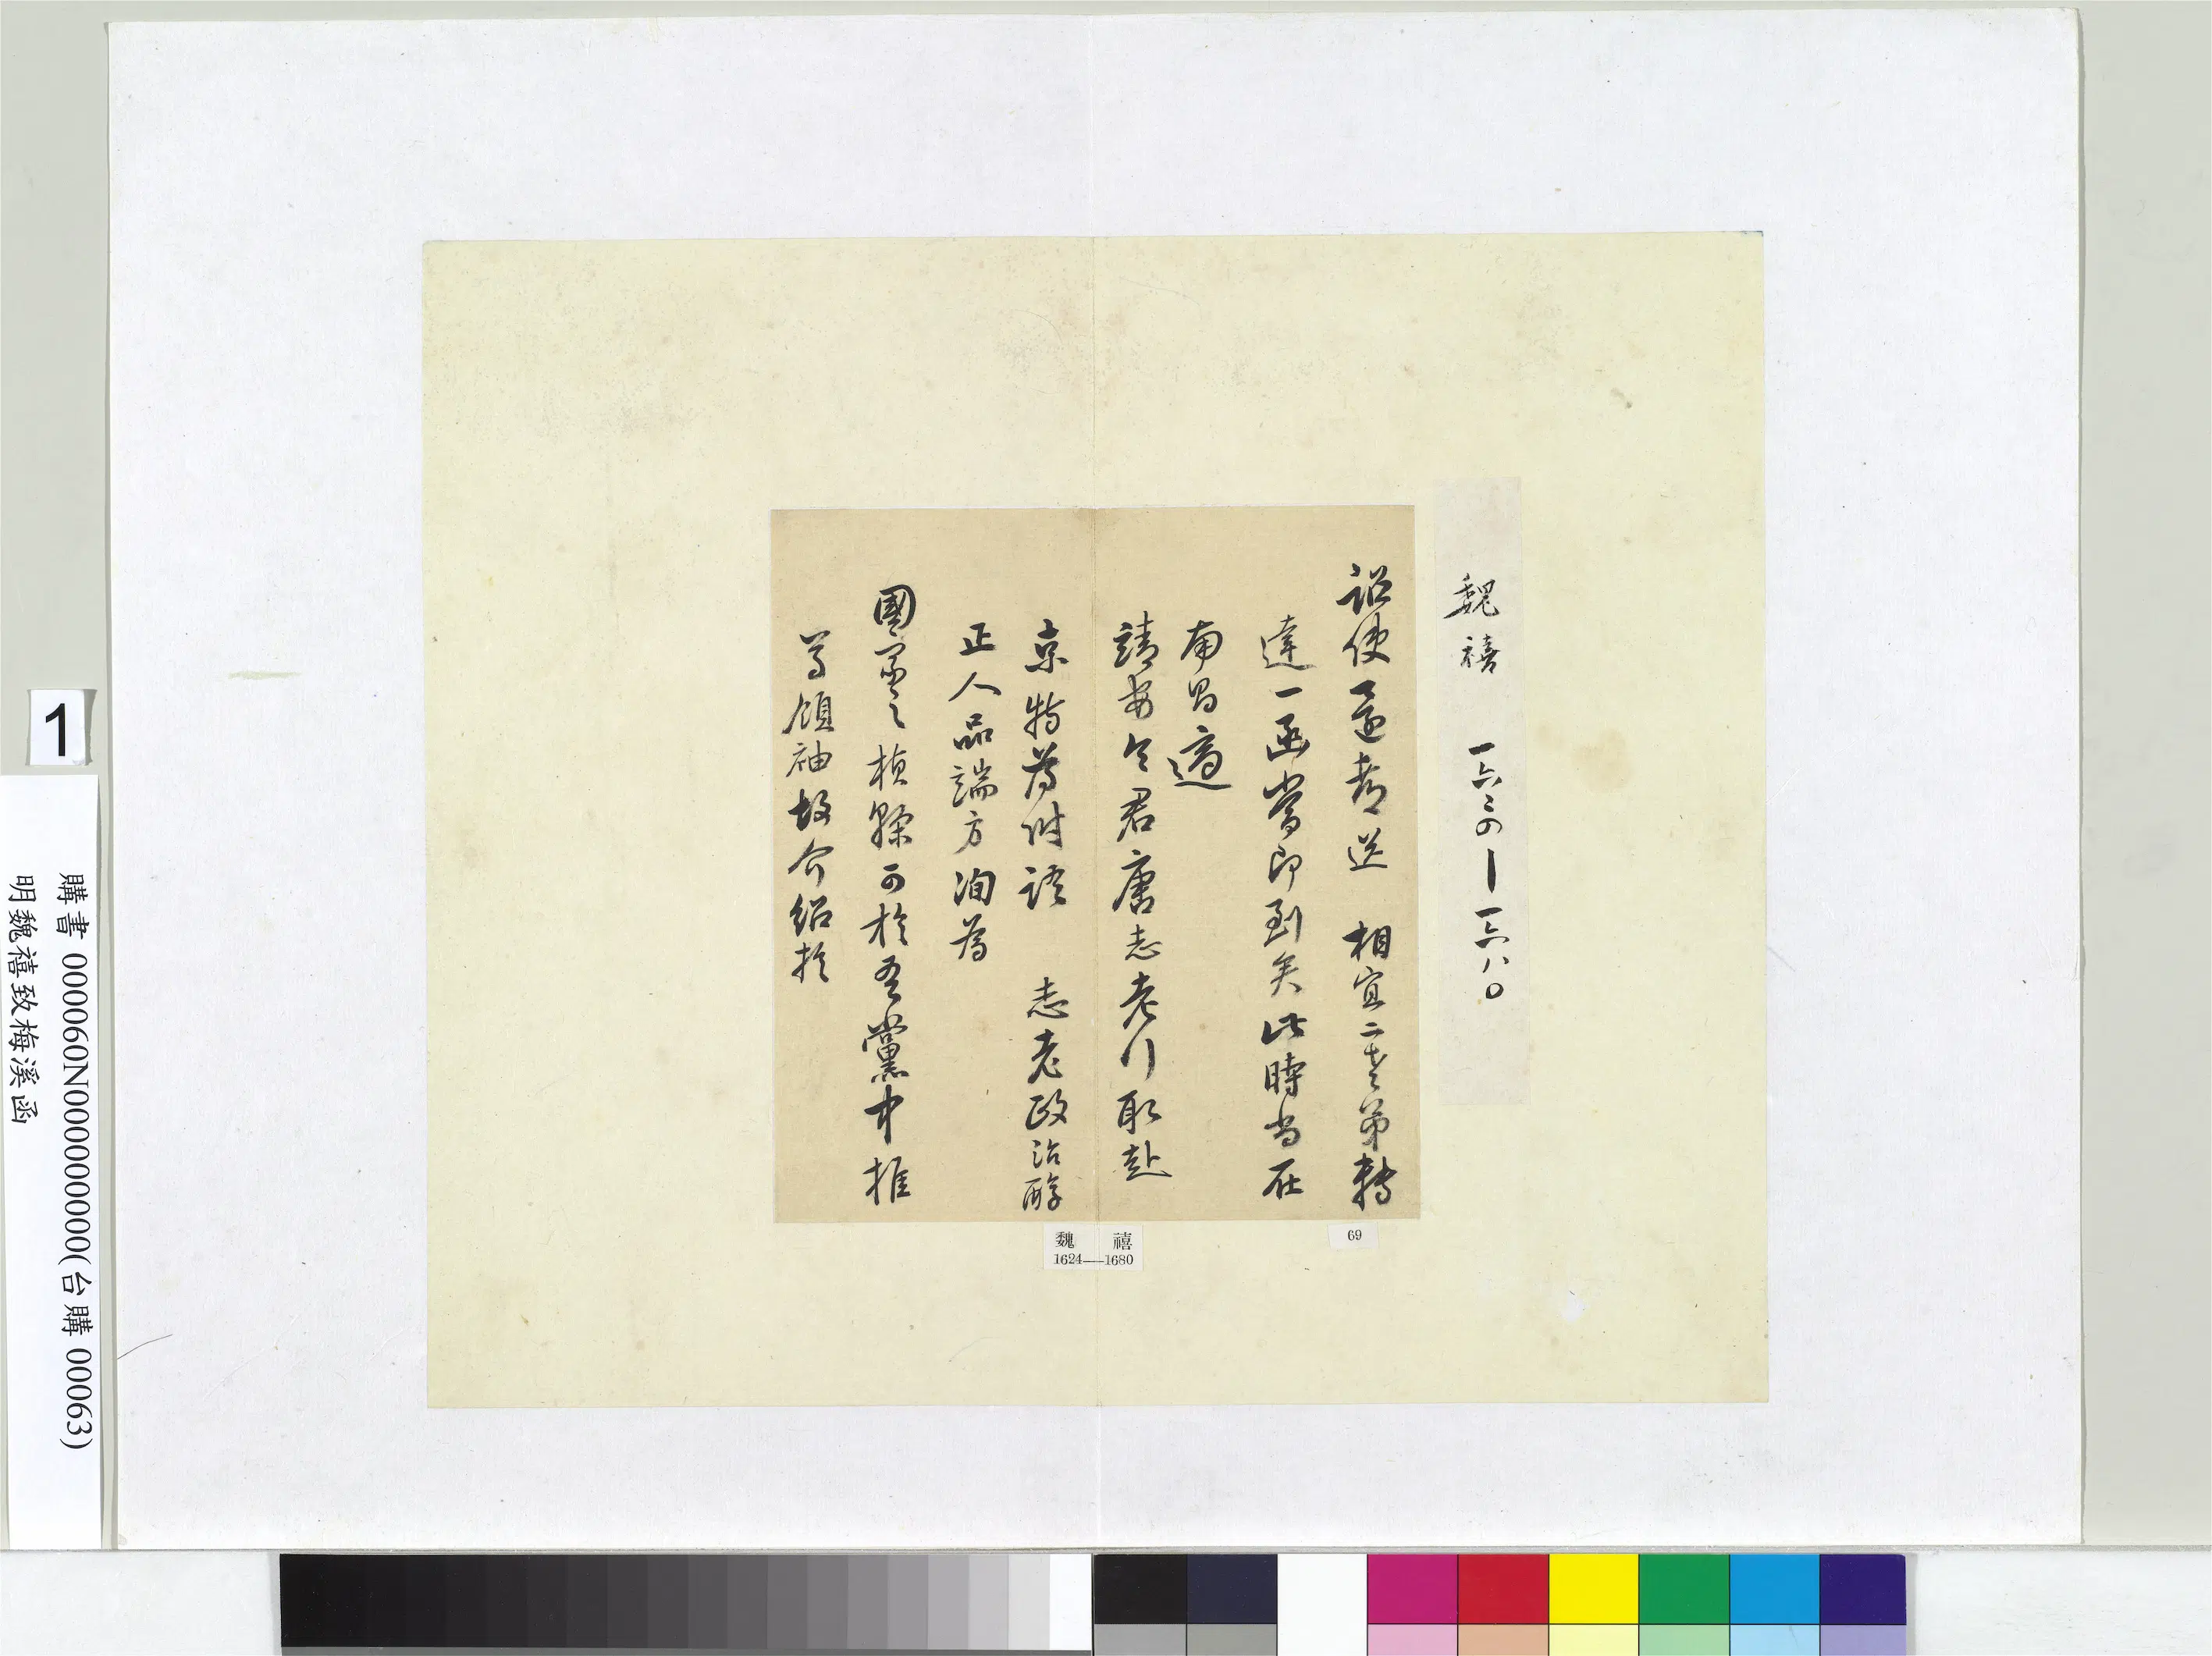 魏禧 一六二四—一六八〇
詔使還者送 相宜二老弟轉
達一函當即到矣此時尚在
南昌適
靖安令君唐志老行取赴
京特為附語 志老政治醇
正人品端方洵為
國家之楨幹可於吾黨中推
為領袖故介紹於
69
魏 禧
1624——1680
1
購書 000060N000000000(台購 00063)
明魏禧致梅溪函